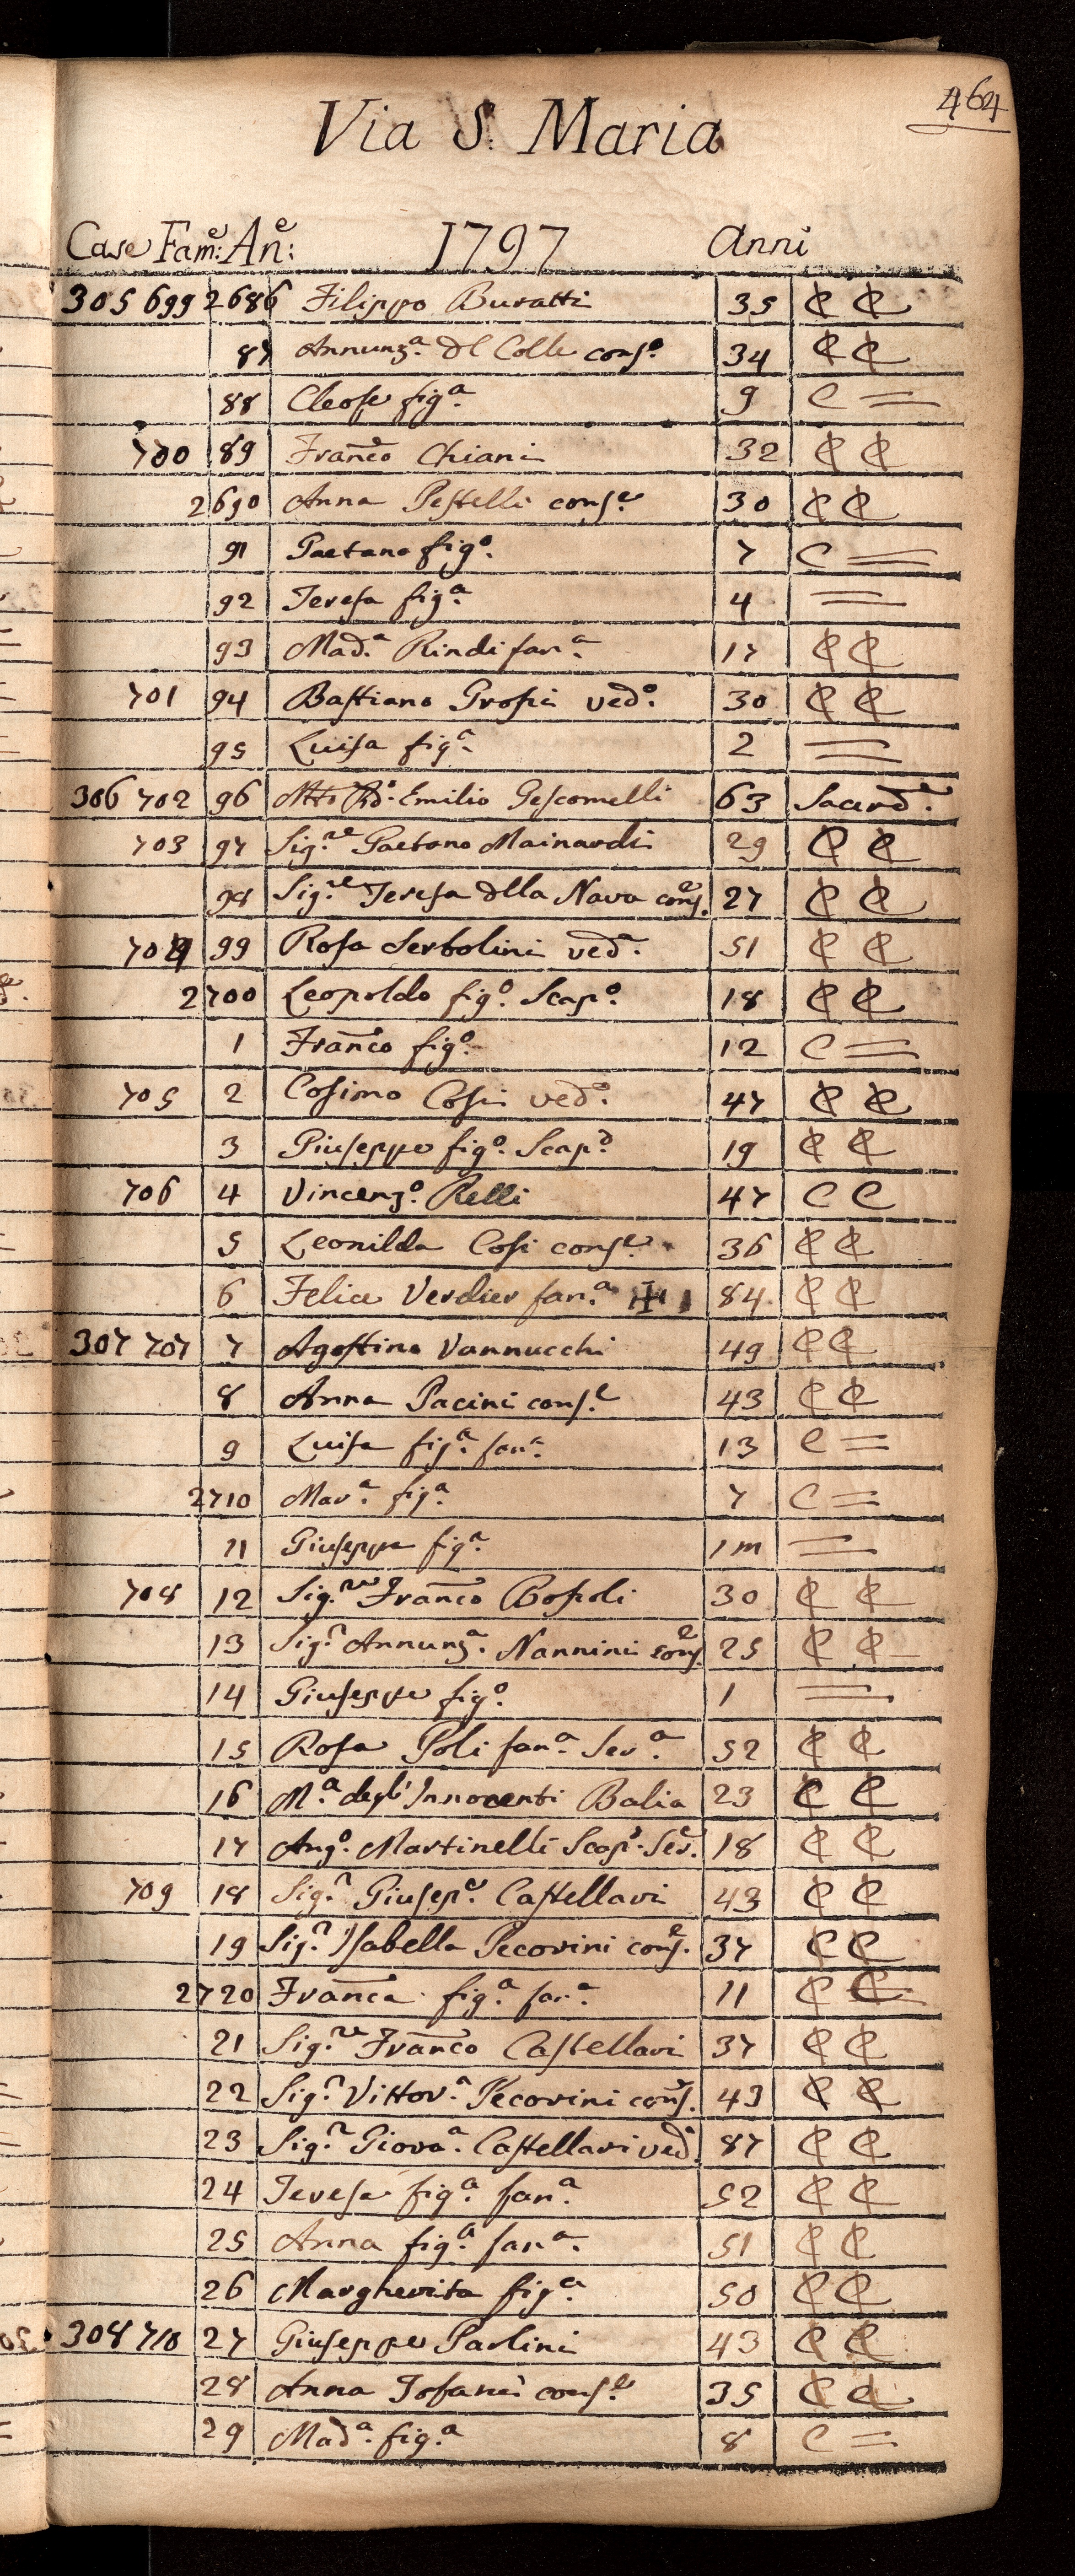 464
Via S. Maria
Case Fam:e An:e 1797 Anni
305 699 2686 Filippo Buratti 35 C C
87 Annunz.a Dl Colle cons.e 34 C C
88 Cleofe fig.a 9 C =
700 89 Franco Chiani 32 C C
2690 Anna Pestelli cons.e 30 C C
91 Gaetano fig.o 7 C =
92 Teresa fig.a 4 =
93 Mad.a Rindi fan.a 17 C C
701 94 Bastiano Grossi ved.o 30 C C
95 Luisa fig.a 2 =
306 702 96 Mto Rd.o Emilio Gescomelli 63 Sacerd.e
703 97 Sig.re Gaetano Mainardi 29 C C
98 Sig.re Teresa della Nava cons.e 27 C C
704 99 Rosa Serbolini ved.a 51 C C
2700 Leopoldo fig.o Scap.o 18 C C
1 Franco fig.o 12 C =
705 2 Cosimo Cosi ved.o 47 C C
3 Giuseppe fig.o Scap.o 19 C C
706 4 Vincenz.o Relli 47 C C
5 Leonilda Cosi cons.e 36 C C
6 Felice Verdier fan.a ✠ 84 C C
307 707 7 Agostino Vannucchi 49 C C
8 Anna Pacini cons.e 43 C C
9 Luisa fig.a fan.a 13 C =
2710 Mar.a fig.a 7 C =
11 Giuseppa fig.a 1 m =
708 12 Sig.re Franco Bossoli 30 C C
13 Sig.ra Annunz.a Nannini cons.e 25 C C
14 Giuseppe fig.o 1 =
15 Rosa Poli fan.a Ser.a 52 C C
16 M.a degl'Innocenti Balia 23 C C
17 Ang.o Martinelli Scap.o Ser.e 18 C C
709 18 Sig.r Giusep.e Castellari 43 C C
19 Sig.ra Isabella Pecorini cons.e 37 C C
2720 Franca fig.a fan.a 11 C C
21 Sig.re Franco Castellari 37 C C
22 Sig.ra Vittor.a Pecorini cons.e 43 C C
23 Sig.ra Giova.a Castellari ved.a 87 C C
24 Teresa fig.a fan.a 52 C C
25 Anna fig.a fan.a 51 C C
26 Margherita fig.a 50 C C
308 710 27 Giuseppe Paolini 43 C C
28 Anna Tofani cons.e 35 C C
29 Mad.a fig.a 8 C =